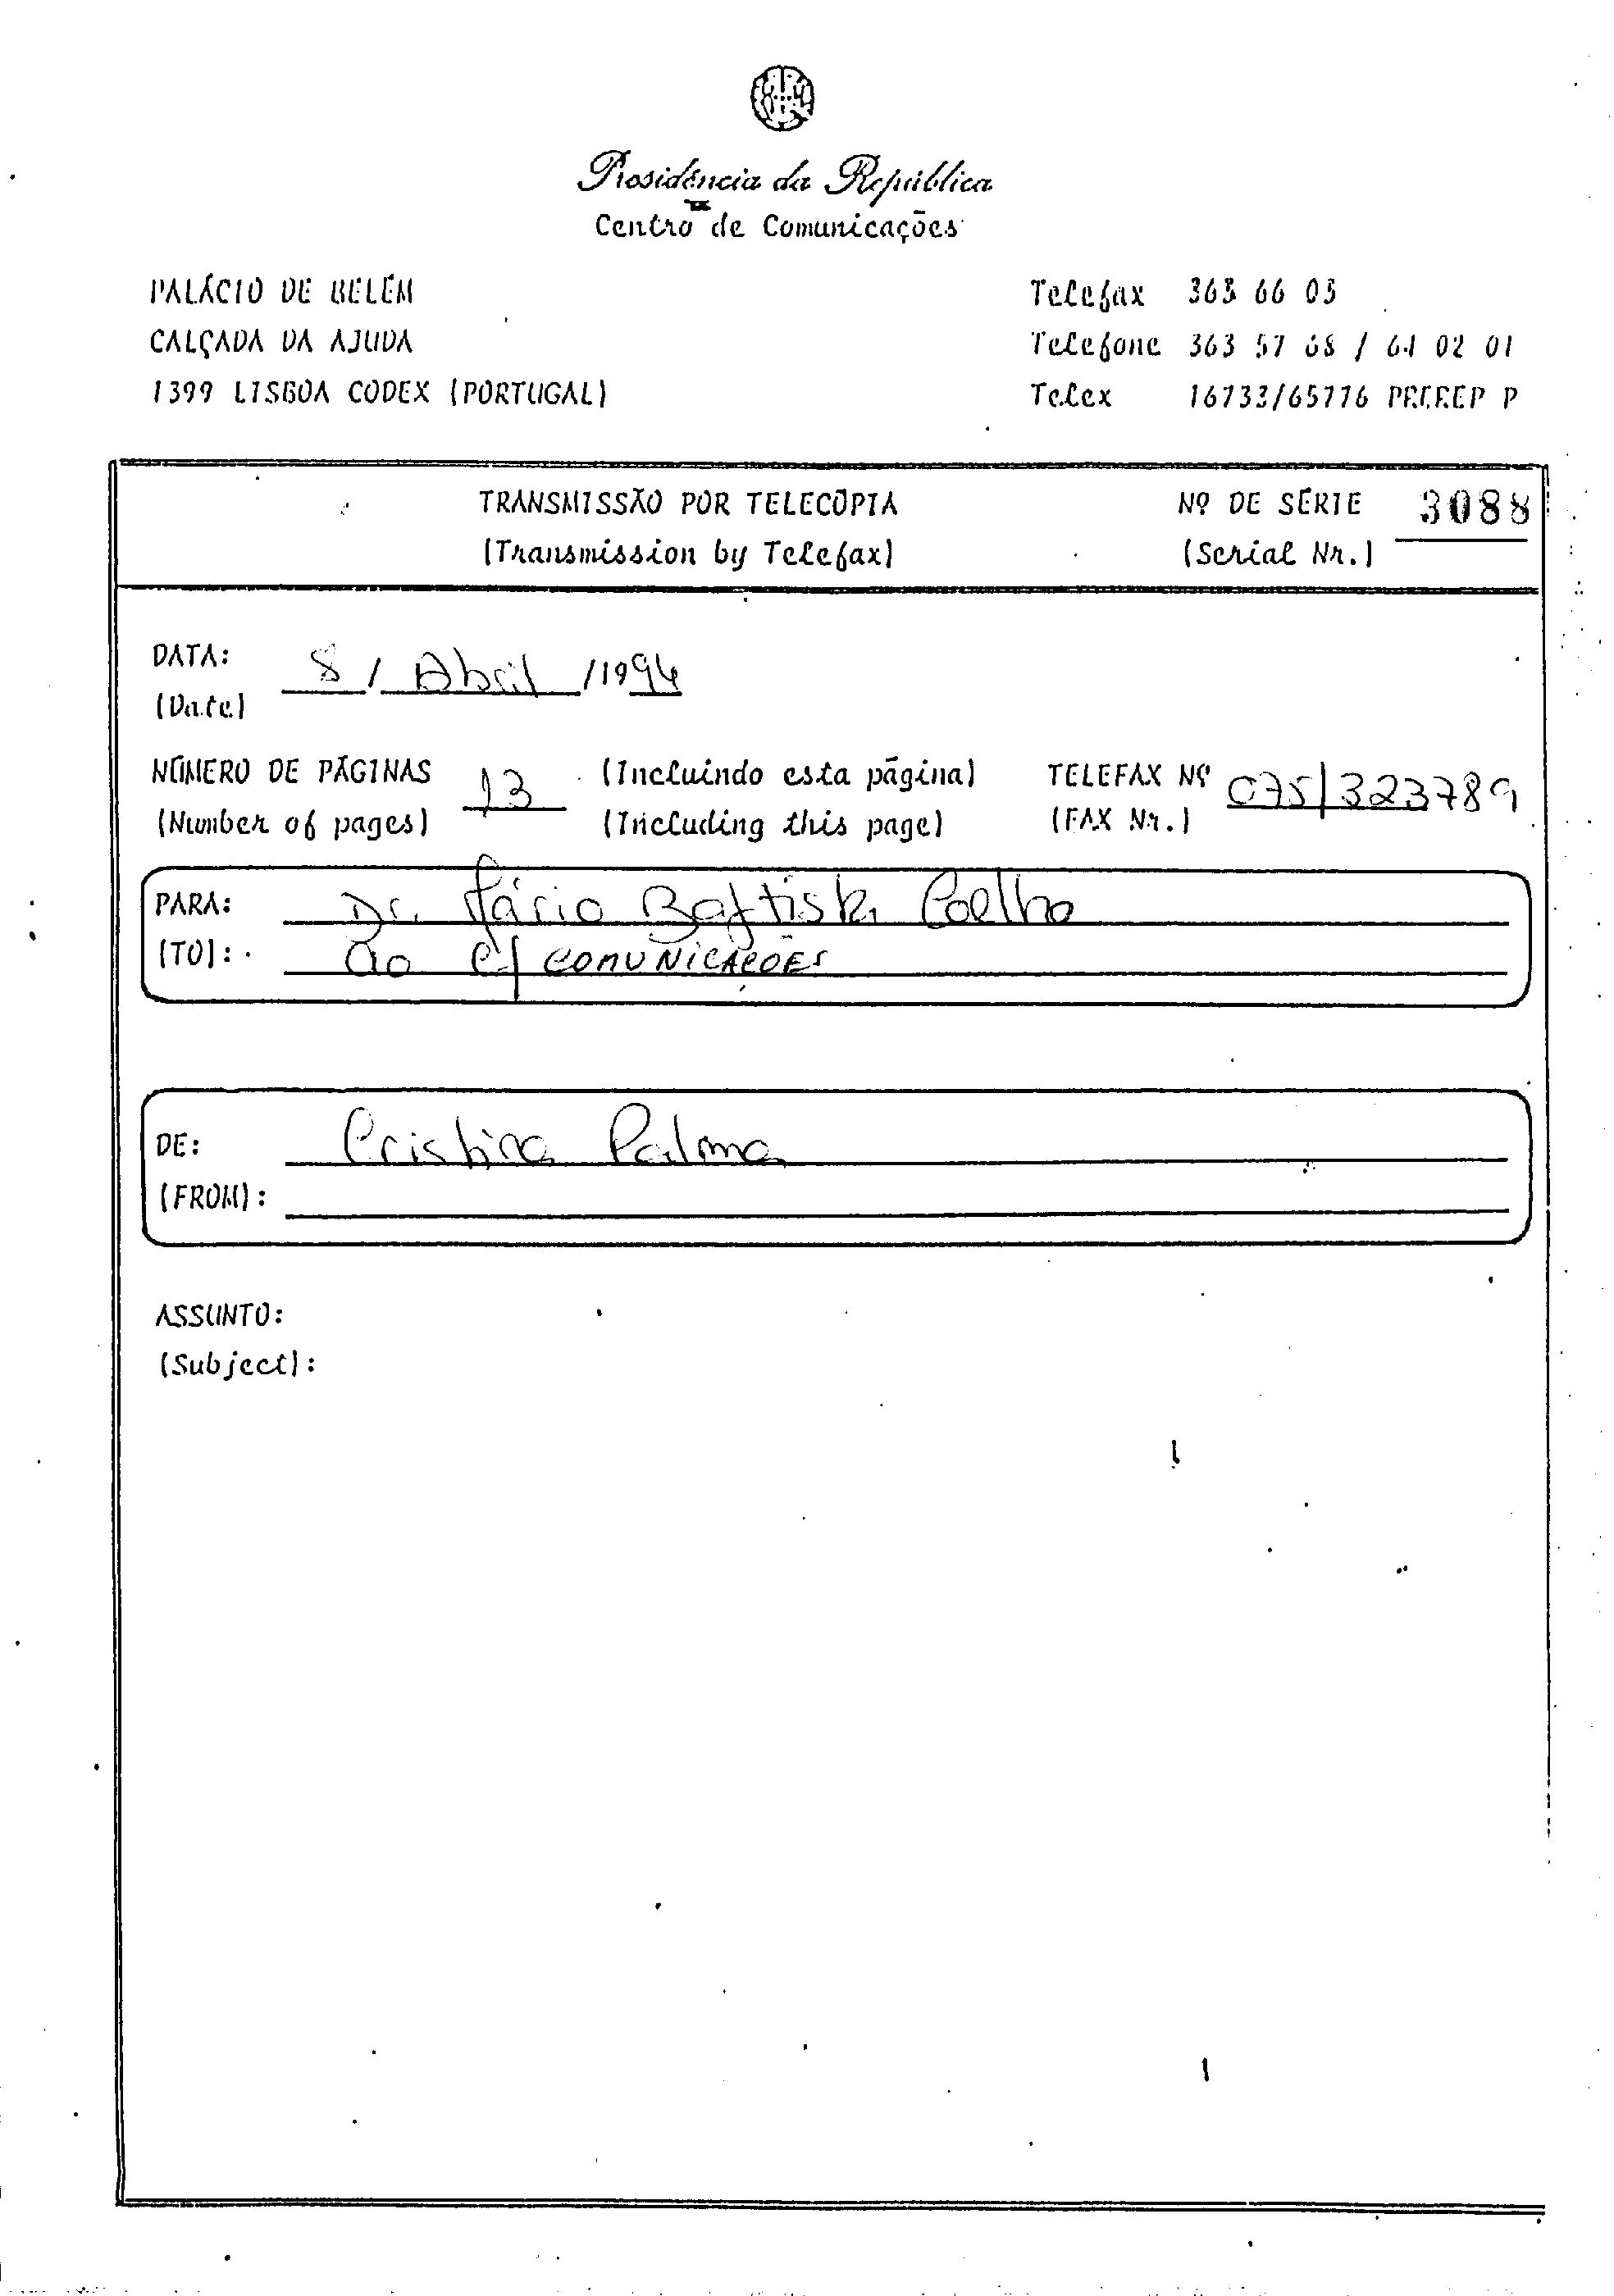 Presidência da República
Centro de Comunicações
PALÁCIO DE BELÉM
CALÇADA DA AJUDA
1399 LISBOA CODEX (PORTUGAL)
Telefax 363 66 03
Telefone 363 57 08 / 64 02 01
Telex 16733/65776 PREREP P
TRANSMISSÃO POR TELECÓPIA Nº DE SÉRIE 3088
(Transmission by Telefax) (Serial Nr.)
DATA: 8 / Abril /1994
(Date)
NÚMERO DE PÁGINAS 13 (Incluindo esta página) TELEFAX Nº 075/323789
(Number of pages) (Including this page) (FAX Nr.)
PARA: Dr. Mário Baptista Coelho
(TO): ao c/ COMUNICAÇÕES
DE: Cristina Palma
(FROM):
ASSUNTO:
(Subject):